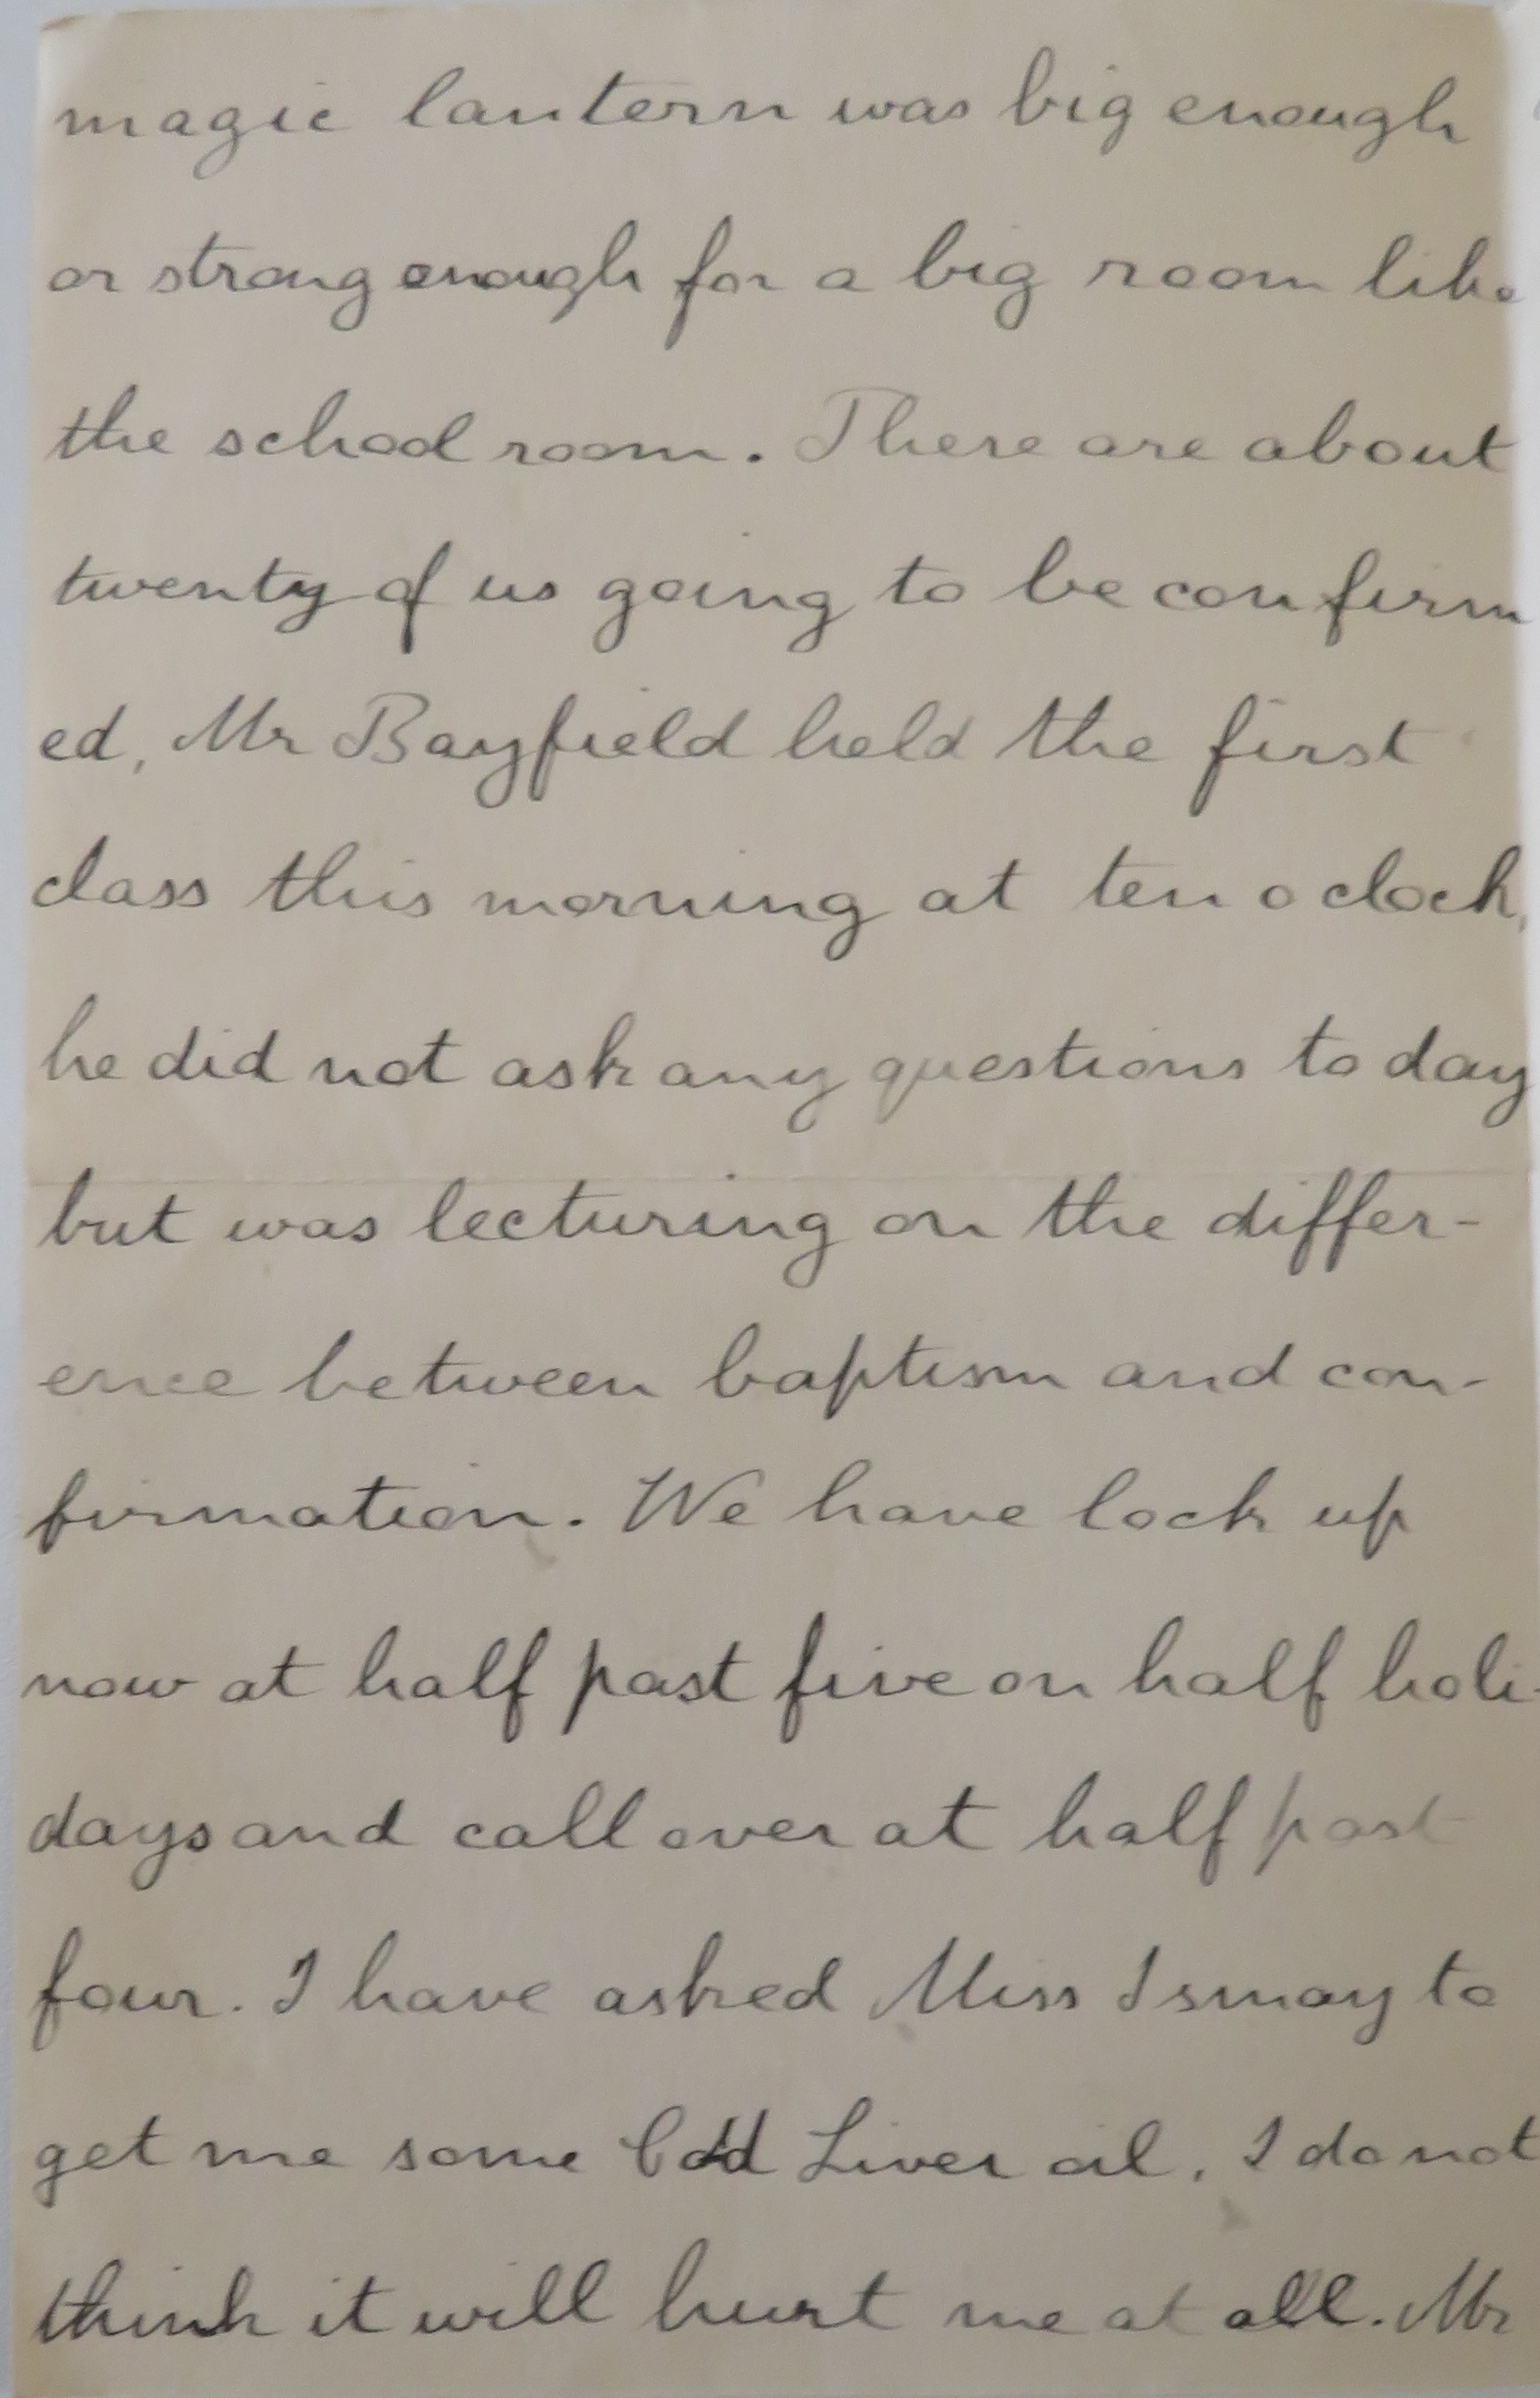 magic lantern was big enough
or strong enough for a big room like
the school room. There are about
twenty of us going to be confirm
ed, Mr Bayfield held the first
class this morning at ten o clock,
he did not ask any questions to day
but was lecturing on the differ-
ence between baptism and con-
firmation. We have lock up
now at half past five on half holi-
days and call over at half past
four. I have asked Miss Ismay to
get me some Cod Liver oil, I do not
think it will hurt me at all. Mr